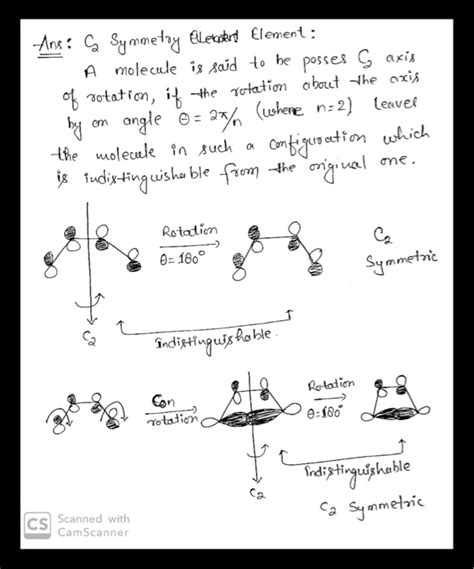 Ans: C₂ Symmetry Element:
A molecule is said to be posses C₂ axis
of rotation, if the rotation about the axis
by an angle θ = 2π/n (where n=2) leaves
the molecule in such a configuration which
is indistinguishable from the original one.
Rotation
θ=180°
C₂
Symmetric
C₂
Indistinguishable.
Con
rotation
Rotation
θ=180°
C₂
Indistinguishable
C₂ Symmetric
CS Scanned with
CamScanner